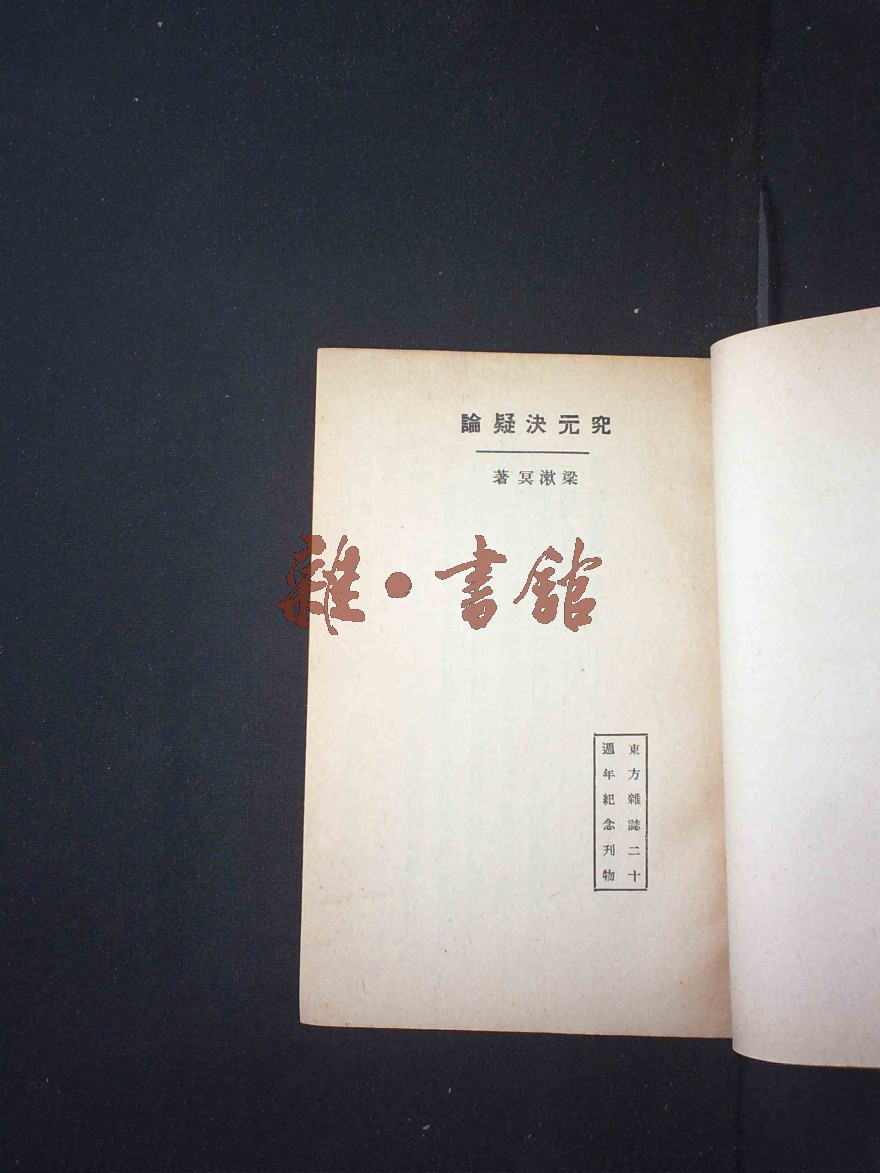 究元決疑論
梁漱冥著
雜·書館
東方雜誌二十
週年紀念刊物